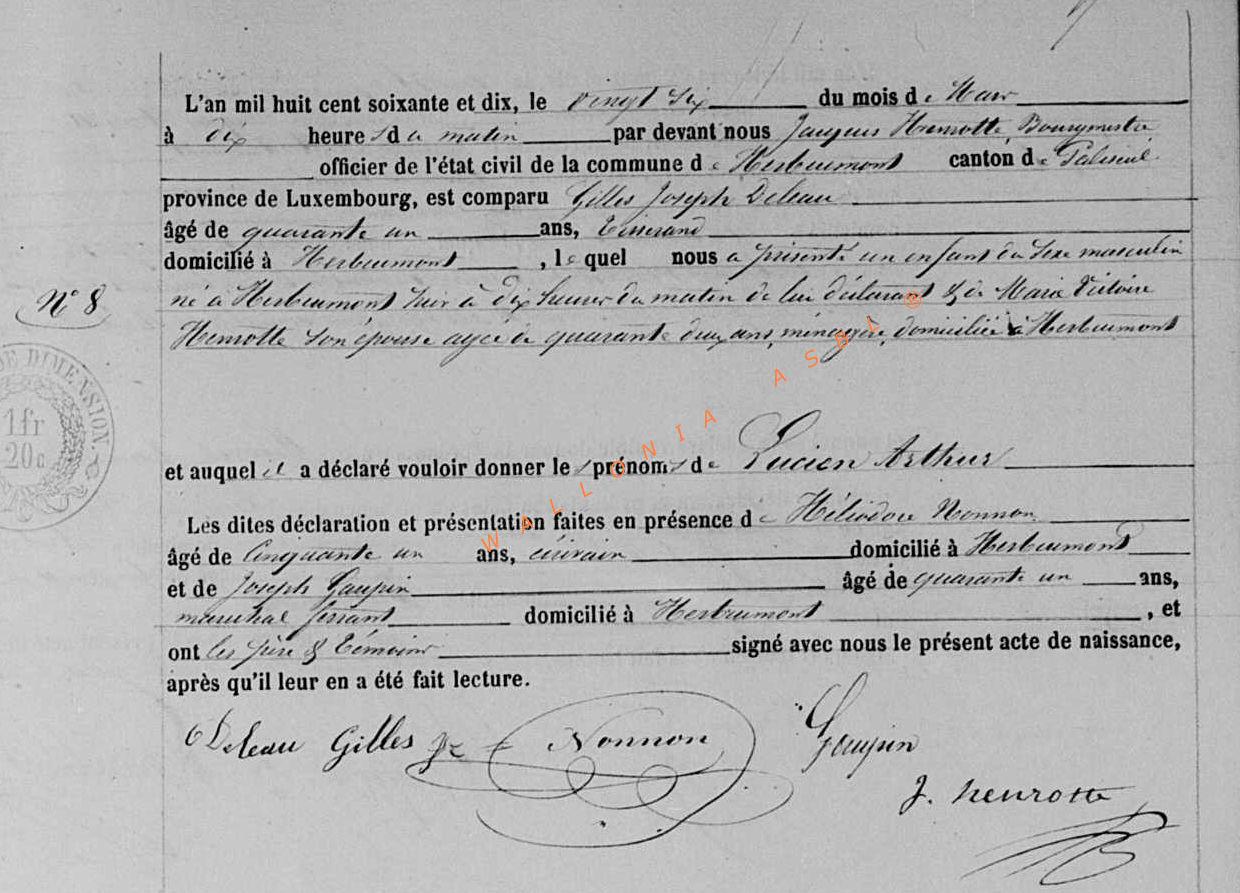 L'an mil huit cent soixante et dix, le vingt six du mois de Mars
à dix heures du matin par devant nous Jacques Henrotte Bourgmestre
officier de l'état civil de la commune de Herbeumont canton de Paliseul
province de Luxembourg, est comparu Gilles Joseph Deleau
âgé de quarante un ans, Tisserand
domicilié à Herbeumont, lequel nous a présenté un enfant du sexe masculin
N° 8
né à Herbeumont hier à dix heures du matin de lui déclarant & de Marie Victoire
Henrotte son épouse agée de quarante deux ans, ménagère, domiciliée à Herbeumont
DE DIMENSION.
1fr
20c
et auquel il a déclaré vouloir donner les prénoms de Lucien Arthur
Les dites déclaration et présentation faites en présence de Héliodore Nonnon
âgé de Cinquante un ans, écrivain domicilié à Herbeumont
et de Joseph Gaupin âgé de quarante un ans,
maréchal ferrant domicilié à Herbeumont, et
ont les père & témoins signé avec nous le présent acte de naissance,
après qu'il leur en a été fait lecture.
Deleau Gilles Nonnon Gaupin
J. henrotte
WALLONIA ASBL ®